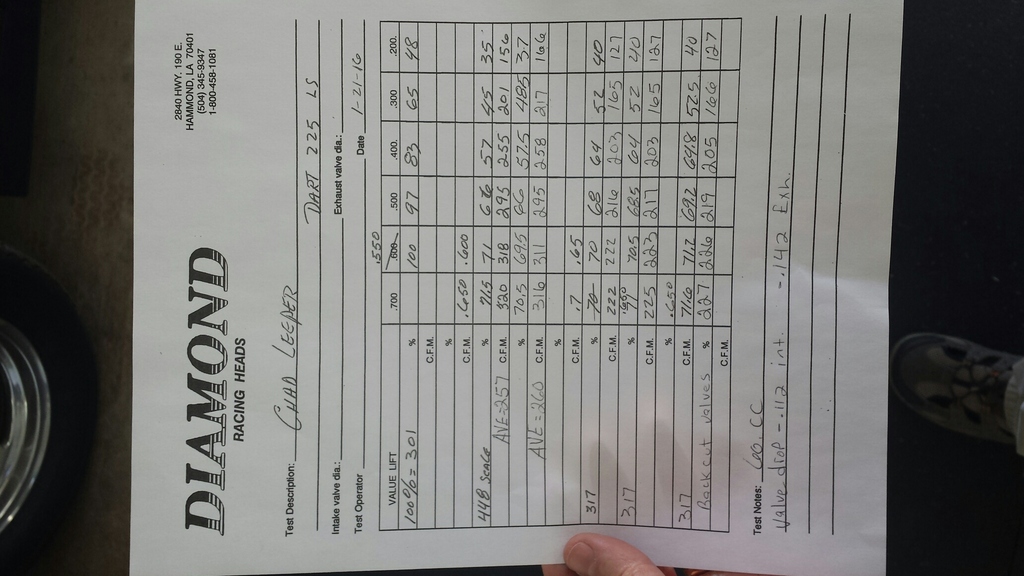 DIAMOND
RACING HEADS
2840 HWY. 190 E.
HAMMOND, LA 70401
(504) 345-9347
1-800-458-1081
Test Description: CHAD LEEPER
DART 225 LS
Intake valve dia.: Exhaust valve dia.:
Test Operator Date 1-21-16
.550
VALUE LIFT .700 .600 .500 .400. .300 .200.
100% = 301 % 100 97 83 65 48
C.F.M.
% .600
C.F.M. .660
448 SCALE % 71.5 71 67.6 57 45 35
AVE=257 C.F.M. 320 318 295 255 201 156
% 70.5 69.5 66 57.5 48.5 37
AVE=260 C.F.M. 316 311 295 258 217 166
%
C.F.M. .7 .65
317 % 70 70 68 64 52 40
C.F.M. 222 222 216 203 165 127
317 % 71 70.5 68.5 64 52 40
C.F.M. 225 223 217 203 165 127
% .650
317 71.6 71.2 69.2 64.8 52.5 40
Backcut valves % 227 226 219 205 166 127
C.F.M.
Test Notes: C.C
Valve drop - .112 int. - .142 Exh.